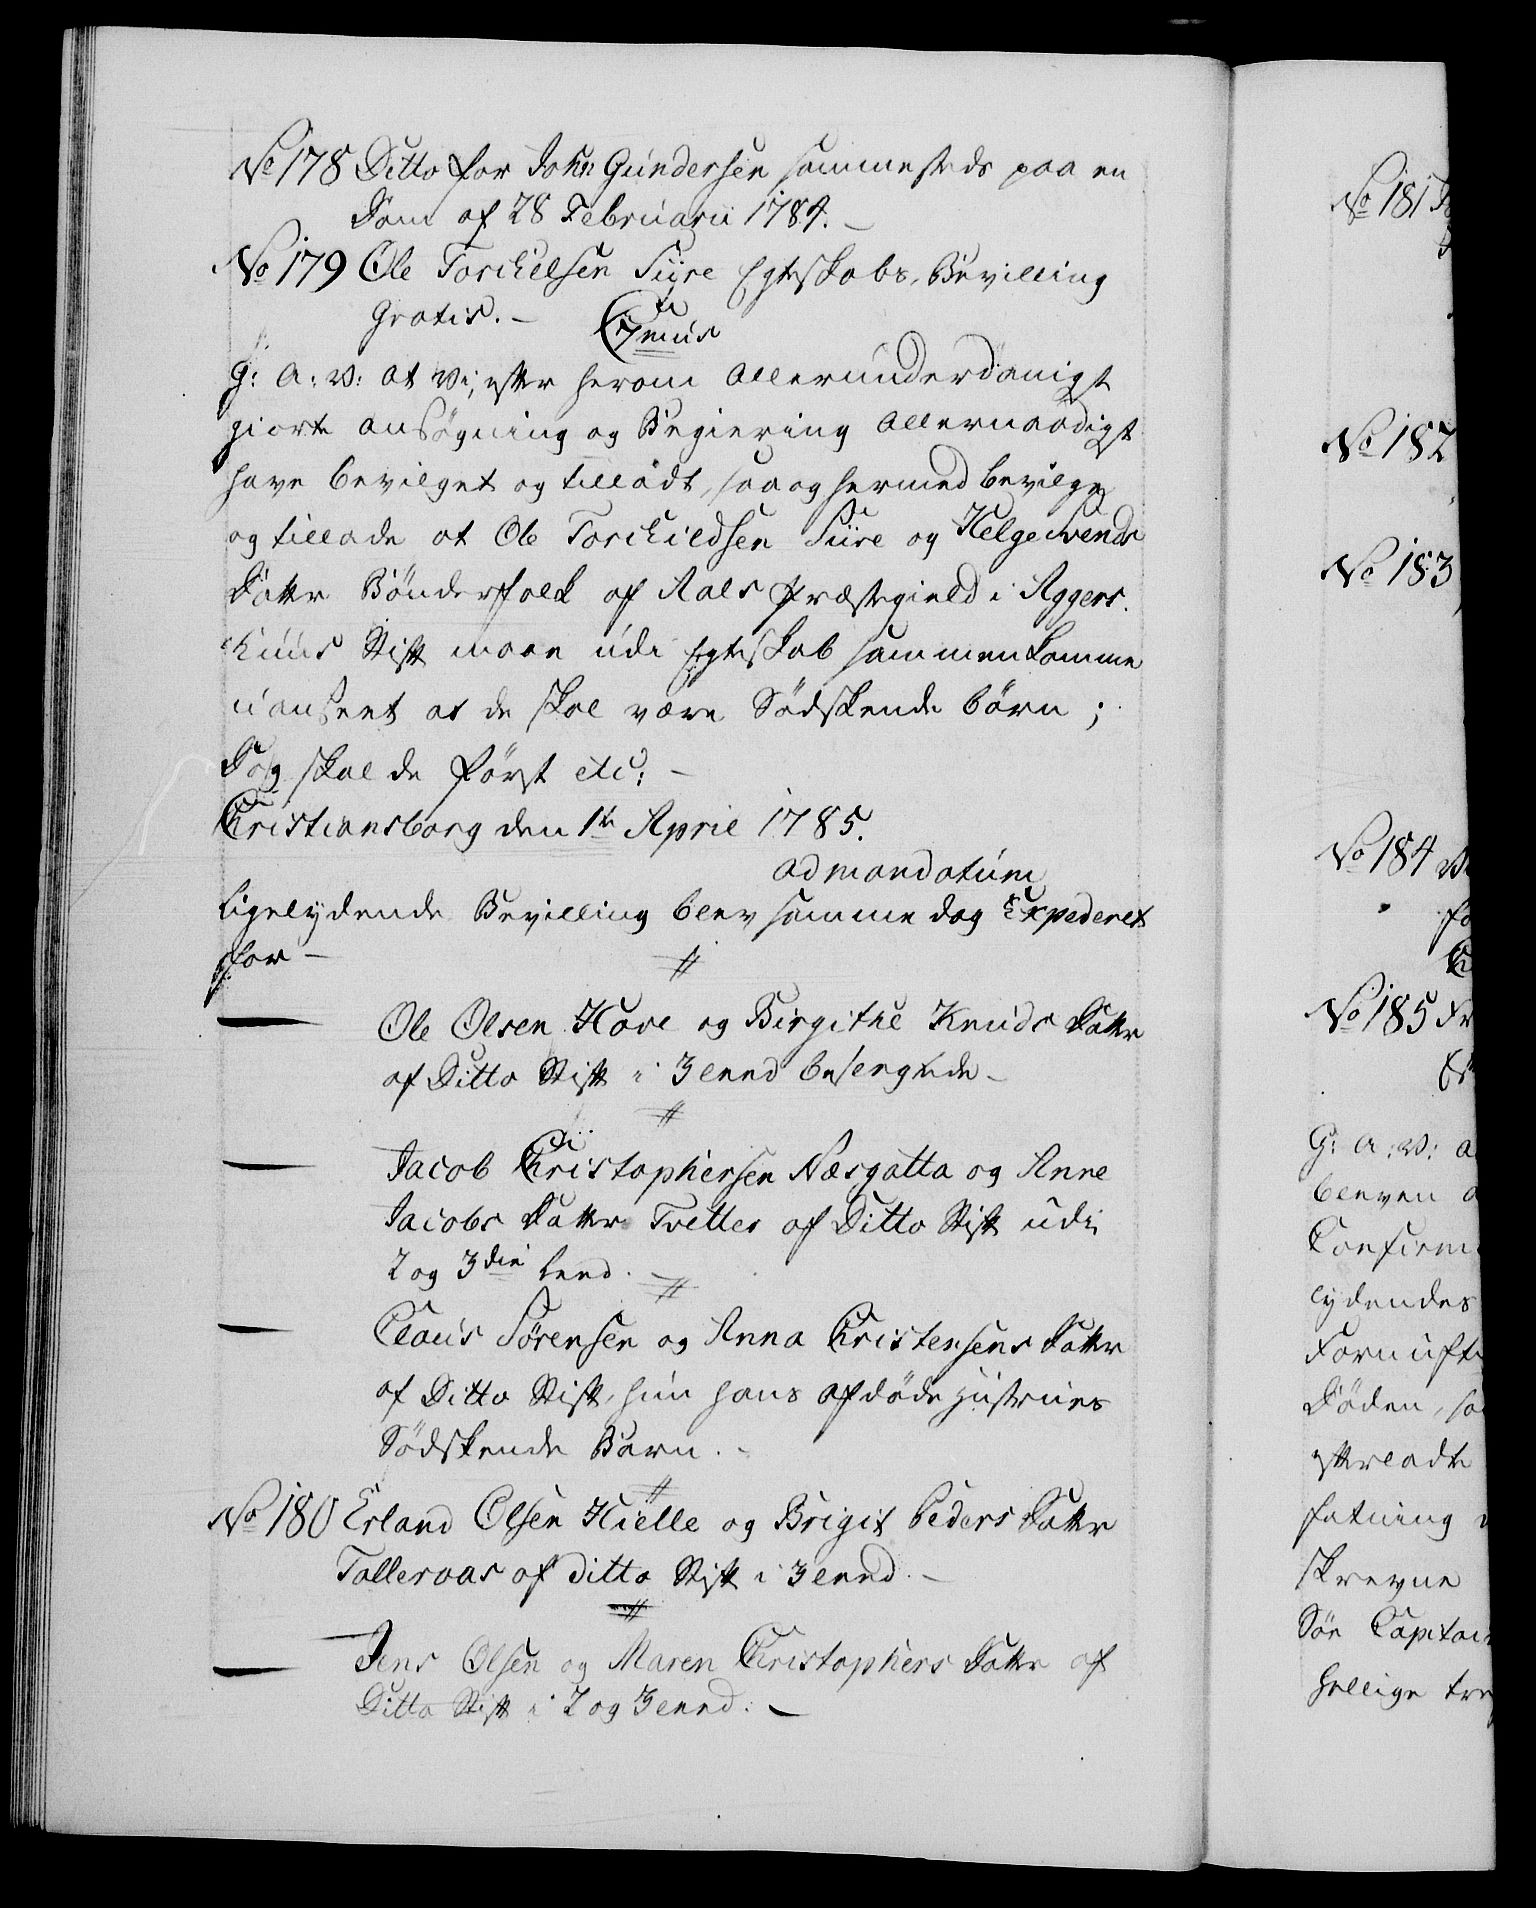 No 178 Ditto for John Gundersen sammesteds paa en
Dom af 28 Februarii 1784. –
No 179 Ole Torchelsen Siire Egteskabs-Bevilling
gratis. – C 7mus
G: A: V: at Vi, efter herom allerunderdanigst
giorte Ansøgning og Begiering allernaadigst
have bevilget og tilladt, saa og hermed bevilge
og tillade at Ole Torchildsen Siire og Helge Svends
Datter Bønderfolk af Aals Præstegield i Aggers-
huus Stift maae udi Egteskab sammenkomme
uanseet at de skal være Södskende börn;
Dog skal de först etc: –
Christiansborg den 1te April 1785.
ad mandatum
Ligelydende Bevilling blev samme dag Expederet
for –
Ole Olsen Hove og Birgithe Knuds Datter
af Ditto Stift i 3 Leed besvangrede –
Jacob Christophersen Næsgatta og Anne
Jacobs Datter Tvetter af Ditto Stift udi
2 og 3die Leed. –
Claus Sørensen og Anna Christensens Datter
af Ditto Stift, hun hans afdöde Hustrues
Södskende Barn. –
No 180 Erland Olsen Hielle og Brigit Peders Datter
Tollervas af ditto Stift i 3 Leed. –
Jens Olsen og Maren Christophers Datter af
Ditto Stift i 2 og 3 Leed. –
No 181
No 182
No 183
No 184
No 185
G: A: V: a
bleven
Confirm
lydendes
Fornuft
Döden, sa
efterladte
fatning
skrevne
Sön Capitai
hellige tre